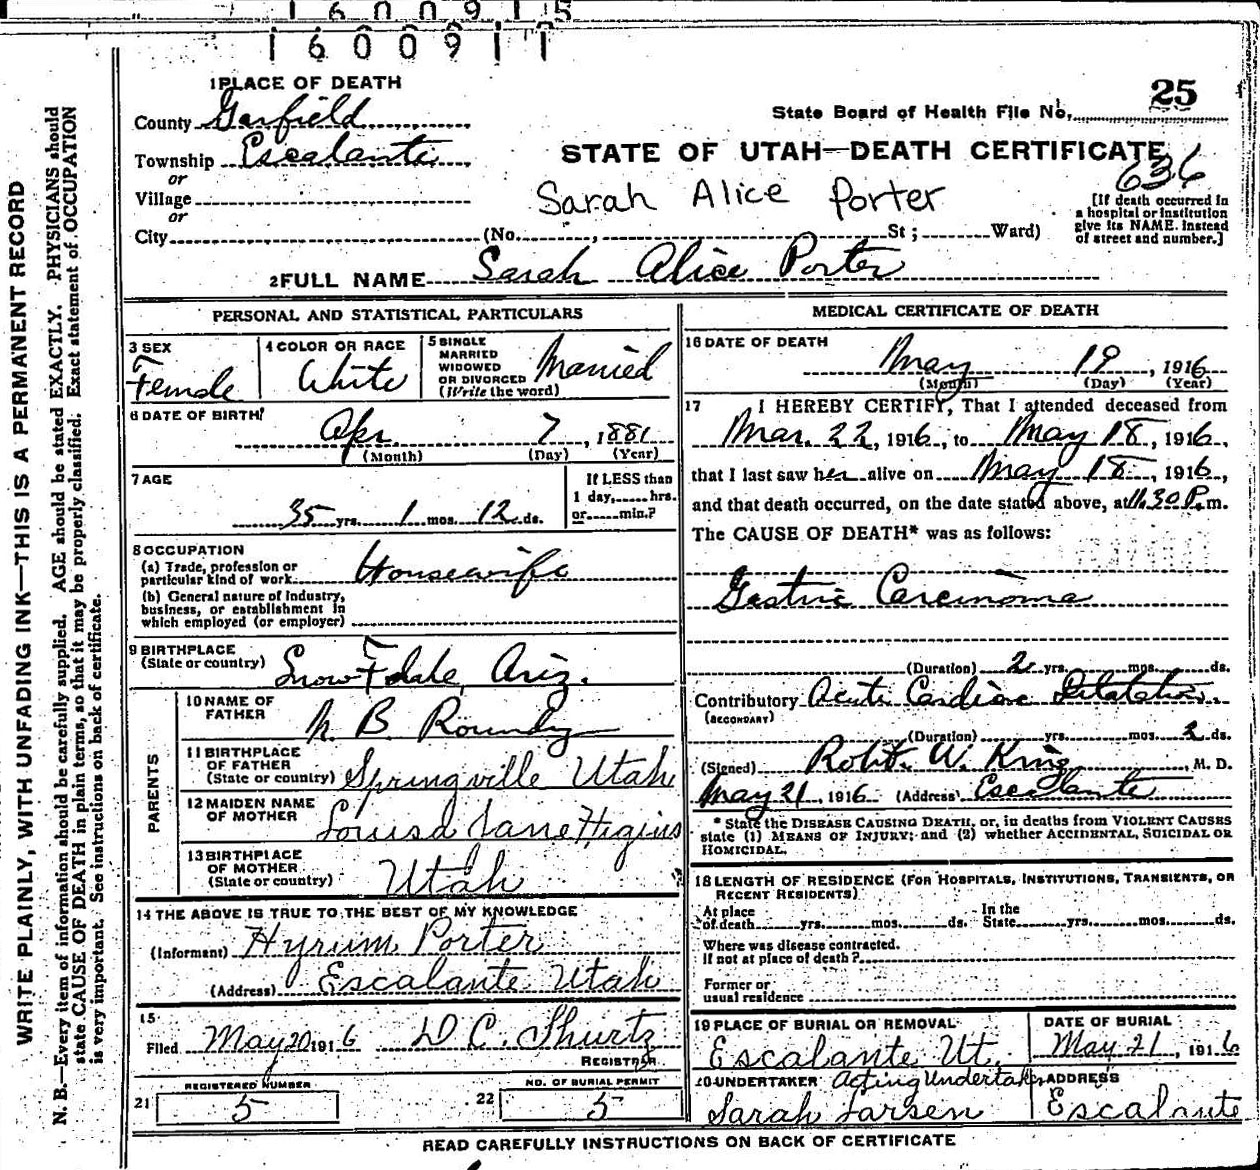 1600915
1600911
1 PLACE OF DEATH
County Garfield
Township Escalante
or
Village
or
City (No. , St ; Ward)
State Board of Health File No. 25
STATE OF UTAH—DEATH CERTIFICATE
636
Sarah Alice Porter
[If death occurred in
a hospital or institution
give its NAME. instead
of street and number.]
2 FULL NAME Sarah Alice Porter
PERSONAL AND STATISTICAL PARTICULARS
3 SEX
Female
4 COLOR OR RACE
White
5 SINGLE
MARRIED
WIDOWED
OR DIVORCED
(Write the word)
Married
6 DATE OF BIRTH
Apr. 7, 1881
(Month) (Day) (Year)
7 AGE
35 yrs. 1 mos. 12 ds.
If LESS than
1 day, hrs.
or min.?
8 OCCUPATION
(a) Trade, profession or
particular kind of work Housewife
(b) General nature of industry,
business, or establishment in
which employed (or employer)
9 BIRTHPLACE
(State or country) Snow Fdale, Ariz.
PARENTS
10 NAME OF
FATHER
B. Roundy
11 BIRTHPLACE
OF FATHER
(State or country) Springville Utah
12 MAIDEN NAME
OF MOTHER
Louisa Jane Higins
13 BIRTHPLACE
OF MOTHER
(State or country) Utah
14 THE ABOVE IS TRUE TO THE BEST OF MY KNOWLEDGE
(Informant) Hyrum Porter
(Address) Escalante Utah
15
Filed May 20 1916 D C. Shurtz
REGISTRAR
REGISTERED NUMBER
21 5
NO. OF BURIAL PERMIT
22 5
MEDICAL CERTIFICATE OF DEATH
16 DATE OF DEATH
May 19, 1916
(Month) (Day) (Year)
17 I HEREBY CERTIFY, That I attended deceased from
Mar. 22, 1916, to May 18, 1916,
that I last saw her alive on May 18, 1916,
and that death occurred, on the date stated above, at 11.30 P.m.
The CAUSE OF DEATH* was as follows:
Gastric Carcinoma
(Duration) 2 yrs. mos. ds.
Contributory Acute Cardiac Dilatation.
(SECONDARY)
(Duration) yrs. mos. 2 ds.
(Signed) Robt. W. King, M. D.
May 21, 1916 (Address) Escalante
* State the DISEASE CAUSING DEATH, or, in deaths from VIOLENT CAUSES
state (1) MEANS OF INJURY; and (2) whether ACCIDENTAL, SUICIDAL OR
HOMICIDAL.
18 LENGTH OF RESIDENCE (FOR HOSPITALS, INSTITUTIONS, TRANSIENTS, OR
RECENT RESIDENTS)
At place
of death yrs. mos. ds.
In the
State yrs. mos. ds.
Where was disease contracted.
If not at place of death?
Former or
usual residence
19 PLACE OF BURIAL OR REMOVAL
Escalante Ut.
DATE OF BURIAL
May 21, 1916
20 UNDERTAKER Acting Undertaker
Sarah Larsen
ADDRESS
Escalante
READ CAREFULLY INSTRUCTIONS ON BACK OF CERTIFICATE
WRITE PLAINLY, WITH UNFADING INK—THIS IS A PERMANENT RECORD
N. B.—Every item of information should be carefully supplied. AGE should be stated EXACTLY. PHYSICIANS should
state CAUSE OF DEATH in plain terms, so that it may be properly classified. Exact statement of OCCUPATION
is very important. See instructions on back of certificate.